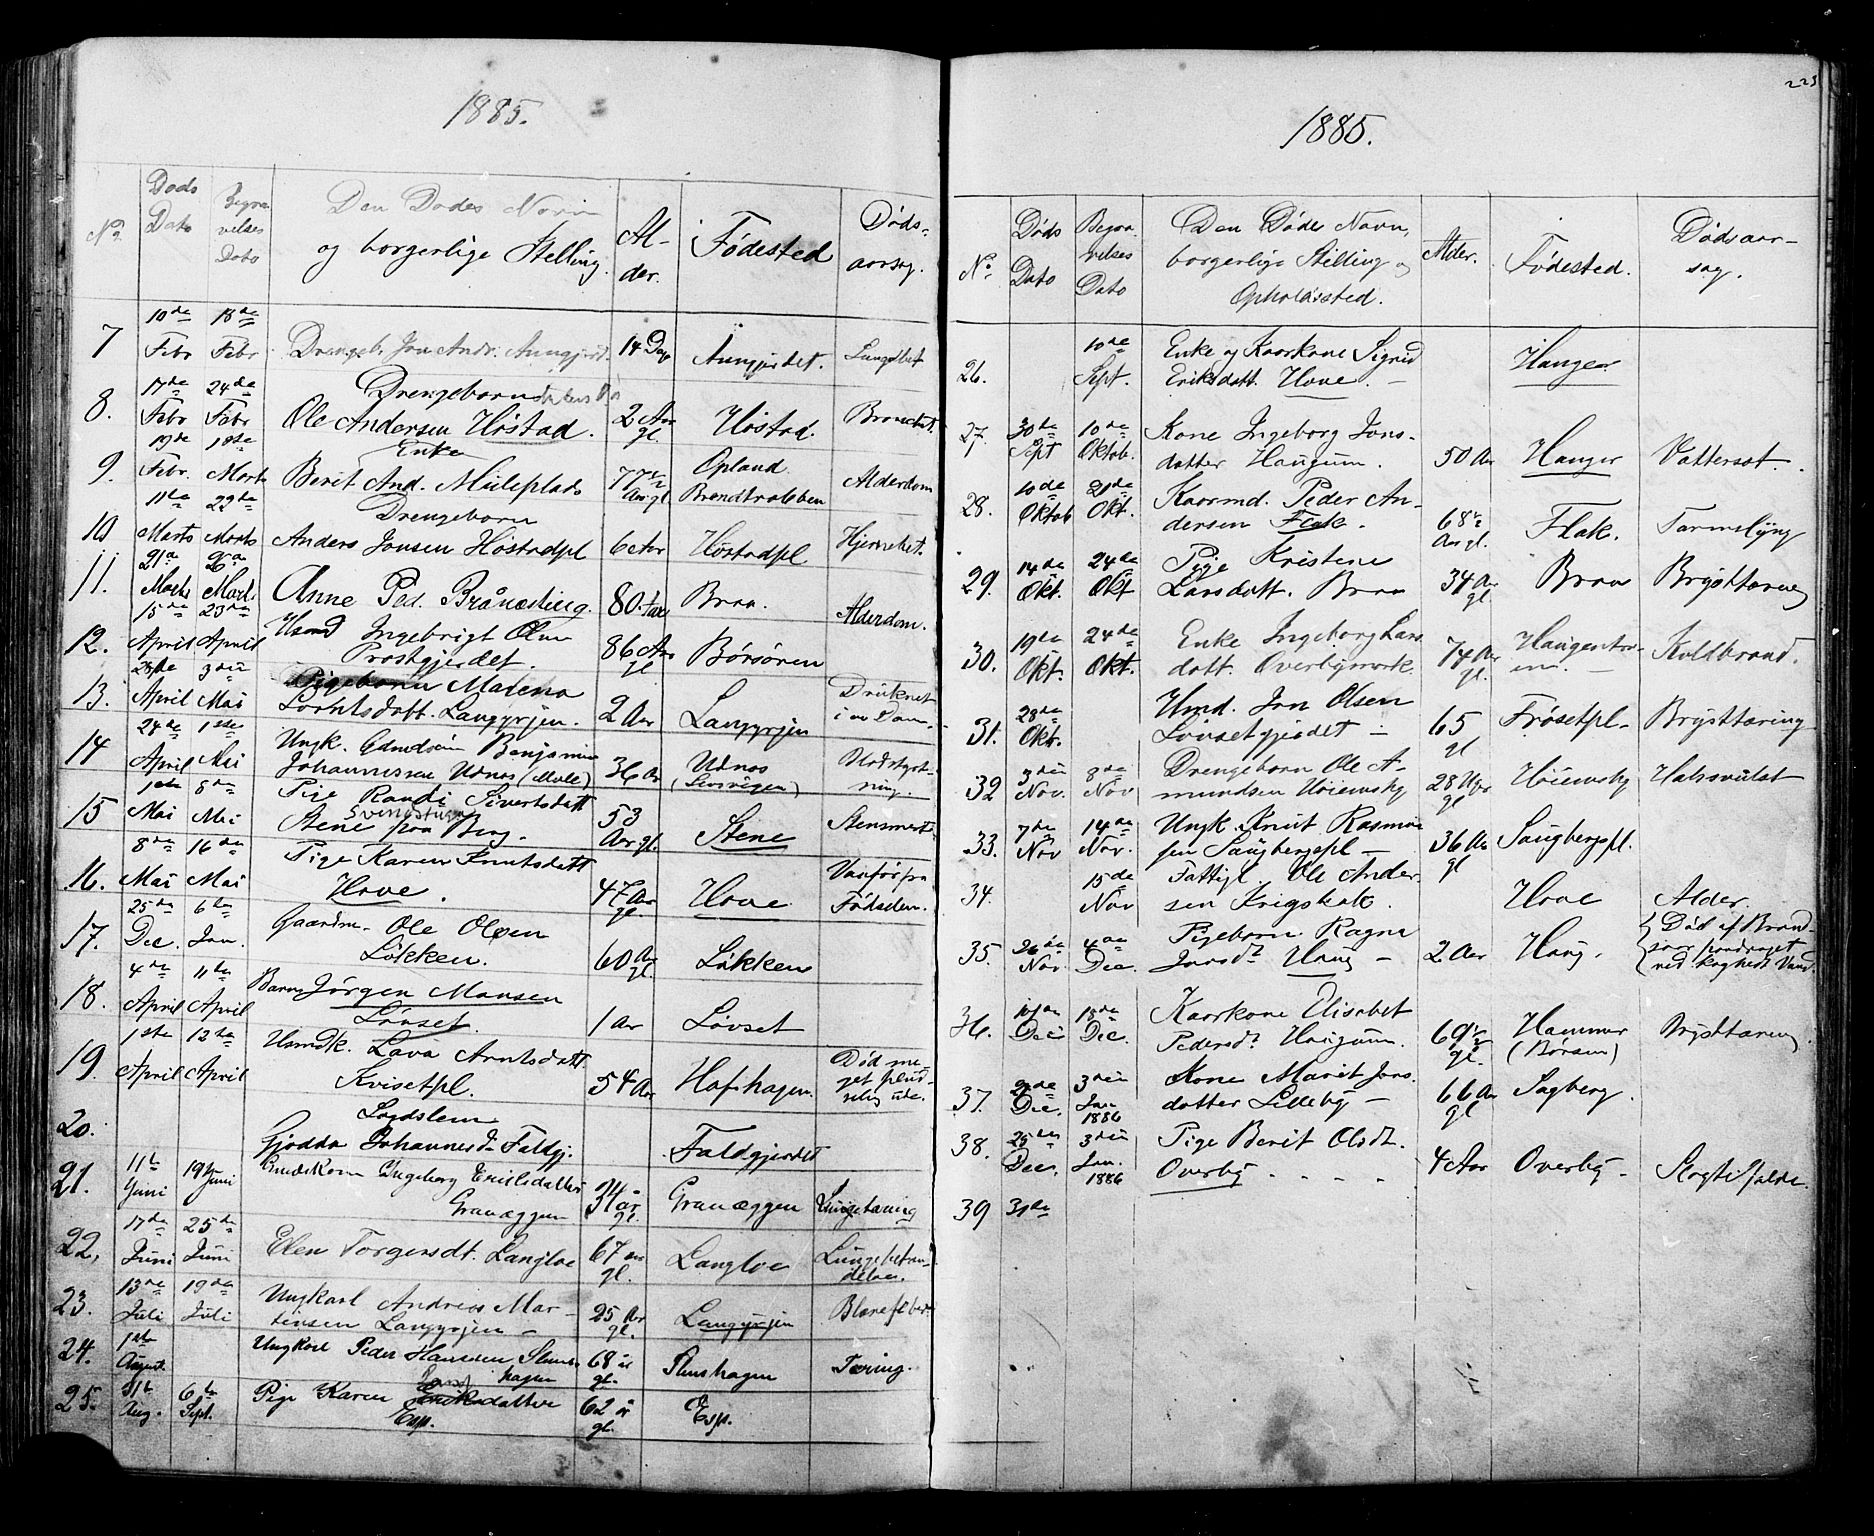 1885.
No
Døds Dato
Begravelses Dato
Den Dødes Navn
og borgerlige Stelling.
Alder.
Fødested
Dødsaarsag.
7 10de Febr 18de Febr Drengeb. Jon Andr. Aungjerdt. 14 Dage Aungjerdet.
8. 17de Febr 24de Febr Drengebarn
Ole Andersen Höstad. 2 Aar gl. Höstad. Bronchit.
9. 19de Febr. 1ste Marts Enke
Berit And. Mileplads 77½ Aar gl. Opland Alderdom
10 11te Marts 22de Marts Drengebarn
Anders Jonsen Höstadpl 6 Aar Höstadpl
11. 21de Marts Marts Anne Ped. 80 Aar
12. 15de April 23de April Usmd Ingebrigt Olsen
Prostgjerdet. 86 Aar gl Börsören Alderdom.
13. April 3die Mai Pigebarn Malena
Langyrjen. 2 Aar Langyrjen Druknet i en Dam.
14 24de April 1ste Mai Ungk. Benjamin
Johannessen Udnas 36 Aar Udnas
15 1ste Mai 8de Mai Pige Randi Sivertsdatt
Stene paa Berg. 53 Aar gl. Stene
16. 8de Mai 16de Mai Pige Karen Arntsdatt
Hove. 47 Aar gl. Hove Vanför fra Födselen.
17. 25de Dec. 6te Jan. Gaardm. Ole Olsen
Lökken. 60 Aar gl. Lökken
18. 4de April 11te April Barn Jörgen Mansen
Lövset. 1 Aar Lövset
19. 1ste April 12te April Lava Arntsdatt
Kvisetpl. 54 Aar Hofhagen. Död meget pludselig
20. Lægdslem
Gjodda Johannesd. Faldgj. Faldgjerdet
21. 11te Juni 19 Juni Ingeborg Eriksdatter
Granæggen 34 aar gl. Granæggen Lungetæring
22, 17de Juni 25de Juni Elen Torgersdt. Langloe 67 aar gl. Langloe Lungebetændelse.
23. 13de Juli 19de Juli Ungkarl Andreas Martinsen
Langyrjen – 25 Aar gl. Langyrjen
24. 1ste August. Ungkarl Peder Hansen Stenshagen 68 år gl. Stenshagen Tæring.
25. 31te Aug. 6te Sept. Pige Karen
Esp. 62 år gl. Esp.
223
1885.
No.
Døds Dato
Begravelses Dato
Den Dødes Navn,
borgerlige Stilling og
Opholdssted.
Alder.
Fødested.
Dødsaarsag.
26. 10de Sept. Enke og Kaarkone Sigrid
Eriksdatt. Hove. – Hanger
27. 30de Sept 10de Oktob. Kone Ingeborg Jonsdatter
Haugum. 50 Aar Hanger Vattersot.
28. 10de Oktob 20de Okt. Kaarmd. Peder Andersen
Flak. 68½ Aar gl. Flak. Tarmslyng
29. 14de Okt. 24de Okt Pige Kristene
Larsdatt. Braa 34 Aar gl. Braa Brysttæring
30. 19de Okt. 24de Okt. Enke Ingeborg Larsdatt.
Overbymark. 74 Aar gl. Koldbrand.
31. 28de Okt. Usmd. Jon Olsen
Lövsetgjerdet – 65 gl Frösetpl– Brysttæring
32 3die Nov. 8de Nov Drengebarn Ole Amundsen
Höiemsby 28 Uger gl Höiemsby
33. 7de Nov 14de Nov. Ungk. Knut Rasmussen
Saugbergspl – 36 Aar gl Saugbergspl.
34. 15de Nov Fattigl. Ole Andersen
Krigshak. Hove Alder.
35. 26de Nov. 4de Dec. Pigebarn Ragna
Jonsdt. Haug – 2 Aar Haug. Död af Brandsaar
paadraget
ved koghedt Vand.
36. Dec 18de Dec. Kaarkone Elisabet
Pedersdt. Haugum. 69½ gl. Hammer
(Børsen) Brysttæring.
37. Dec. 3die Jan. 1886 Kone Marit Jonsdatter
Lilleby – 66 Aar gl. Sagberg.
38. 25de Dec. 3die Jan. 1886 Pige Berit Olsdt.
Overby 4 Aar Overby –
39 31te